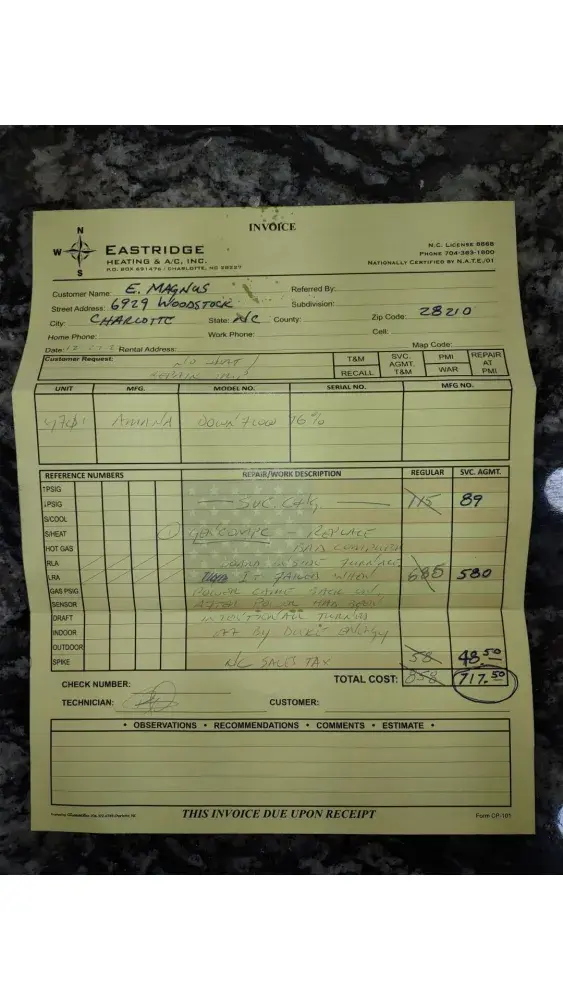 INVOICE
N
W
S
EASTRIDGE
HEATING & A/C, INC.
P.O. BOX 691476 / CHARLOTTE, NC 28227
N.C. LICENSE 8868
PHONE 704-383-1800
NATIONALLY CERTIFIED BY N.A.T.E./01
Customer Name: E. MAGNUS Referred By:
Street Address: 6929 WOODSTOCK Subdivision:
City: CHARLOTTE State: NC County: Zip Code: 28210
Home Phone: Work Phone: Cell:
Date: Rental Address: Map Code:
Customer Request: NO HEAT /
T&M SVC. AGMT. T&M PMI REPAIR AT PMI
RECALL WAR
UNIT MFG. MODEL NO. SERIAL NO. MFG NO.
AMANA DOWNFLOW 96%
REFERENCE NUMBERS REPAIR/WORK DESCRIPTION REGULAR SVC. AGMT.
↑PSIG
↓PSIG SVC CHG 115 89
S/COOL
S/HEAT 1 REPLACE
HOT GAS BAD COMPUTER
RLA BOARD INSIDE FURNACE
LRA IT FAILED WHEN 685 580
GAS PSIG POWER CAME BACK ON,
SENSOR AFTER POWER HAD BEEN
DRAFT INTENTIONALLY TURNED
INDOOR OFF BY DUKE ENERGY
OUTDOOR
SPIKE NC SALES TAX 58 48.50
CHECK NUMBER: TOTAL COST: 858 717.50
TECHNICIAN: CUSTOMER:
• OBSERVATIONS • RECOMMENDATIONS • COMMENTS • ESTIMATE •
THIS INVOICE DUE UPON RECEIPT
Form CP-101